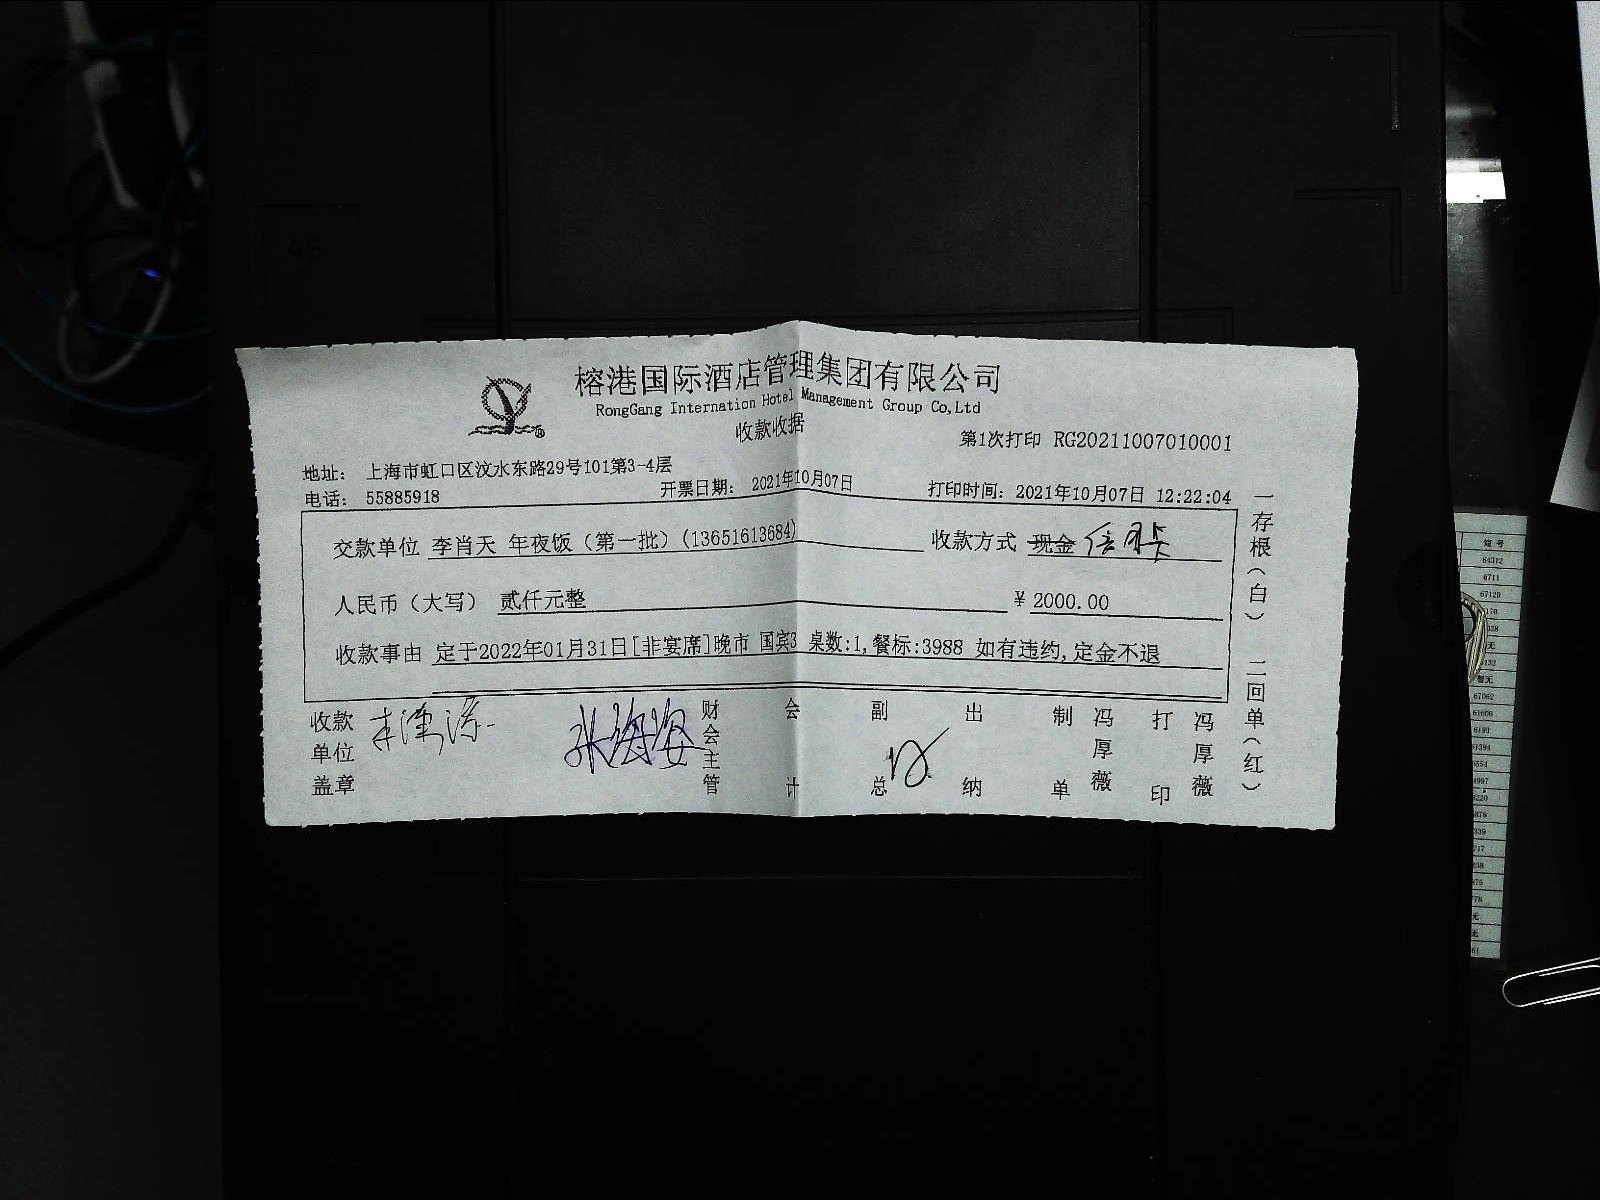 榕港国际酒店管理集团有限公司
RongGang Internation Hotel Management Group Co,Ltd
收款收据
第1次打印 RG20211007010001
地址: 上海市虹口区汶水东路29号101第3-4层
电话: 55885918
开票日期: 2021年10月07日
打印时间: 2021年10月07日 12:22:04
交款单位 李肖天 年夜饭（第一批）(13651613684)
收款方式 现金 信用卡
人民币（大写） 贰仟元整
¥ 2000.00
收款事由 定于2022年01月31日[非宴席]晚市 国宾3 桌数:1,餐标:3988 如有违约,定金不退
收款单位盖章
财会主管
会计
副总
出纳
制单
冯厚薇
打印
冯厚薇
一存根（白） 二回单（红）
短号
64312
6711
67129